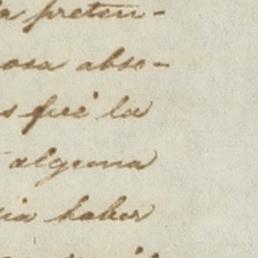 a preten-
osa abso-
s fué la
alguna
ia haber